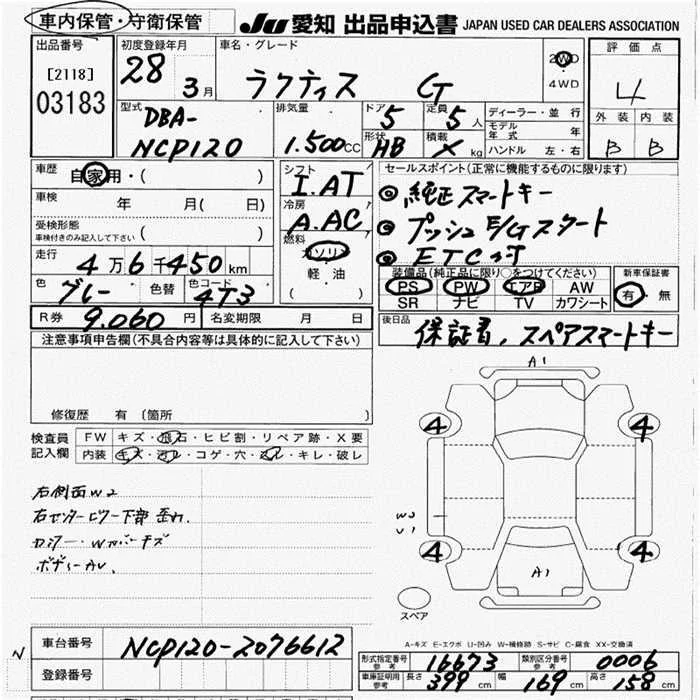 車内保管・守衛保管
JU 愛知 出品申込書 JAPAN USED CAR DEALERS ASSOCIATION
出品番号 初度登録年月 車名・グレード 評価点
[2118] 28 3月 ラクティス G 2WD ・ 4WD 4
03183
型式 排気量 ドア 定員 ディーラー・並行 外装 内装
DBA- 5 5人 モデル年式 年
NCP120 1.500cc 形状 HB 積載 X kg ハンドル 左・右 B B
車歴 自家用・( ) シフト I.AT セールスポイント(正常に機能するものに限ります)
車検 年 月( 日) 冷房 ◎純正スマートキー
受検形態 A.AC ◎プッシュE/Gスタート
車検付きのみ記入して下さい ( ) 燃料 ◎ETC付
走行 4万6千450km ガソリン 装備品(純正品に限り○をつけてください) 新車保証書
色 グレー 色替 色コード 4T3 軽油 PS PW エアB AW 有・無
( ) SR ナビ TV カワシート
R券 9.060円 名変期限 月 日 後日品
注意事項申告欄(不具合内容等は具体的に記入して下さい) 保証書、スペアスマートキー
A1
修復歴 有 〔箇所
4 4
検査員 FW キズ・飛石・ヒビ割・リペア跡・X要
記入欄 内装 キズ・汚レ・コゲ・穴・スレ・キレ・破レ
右側面W2
右センターピラー下部歪れ W2
U1
4 4
ボディーAU.
A1
スペア
A-キズ E-エクボ U-凹み W-補修跡 S-サビ C-腐食 XX-交換済
車台番号 NCP120-2076612
N
形式指定番号 参考 16673 類別区分番号 参考 0006
登録番号 車庫証明用 参考 長さ 399cm 幅 169cm 高さ 158cm